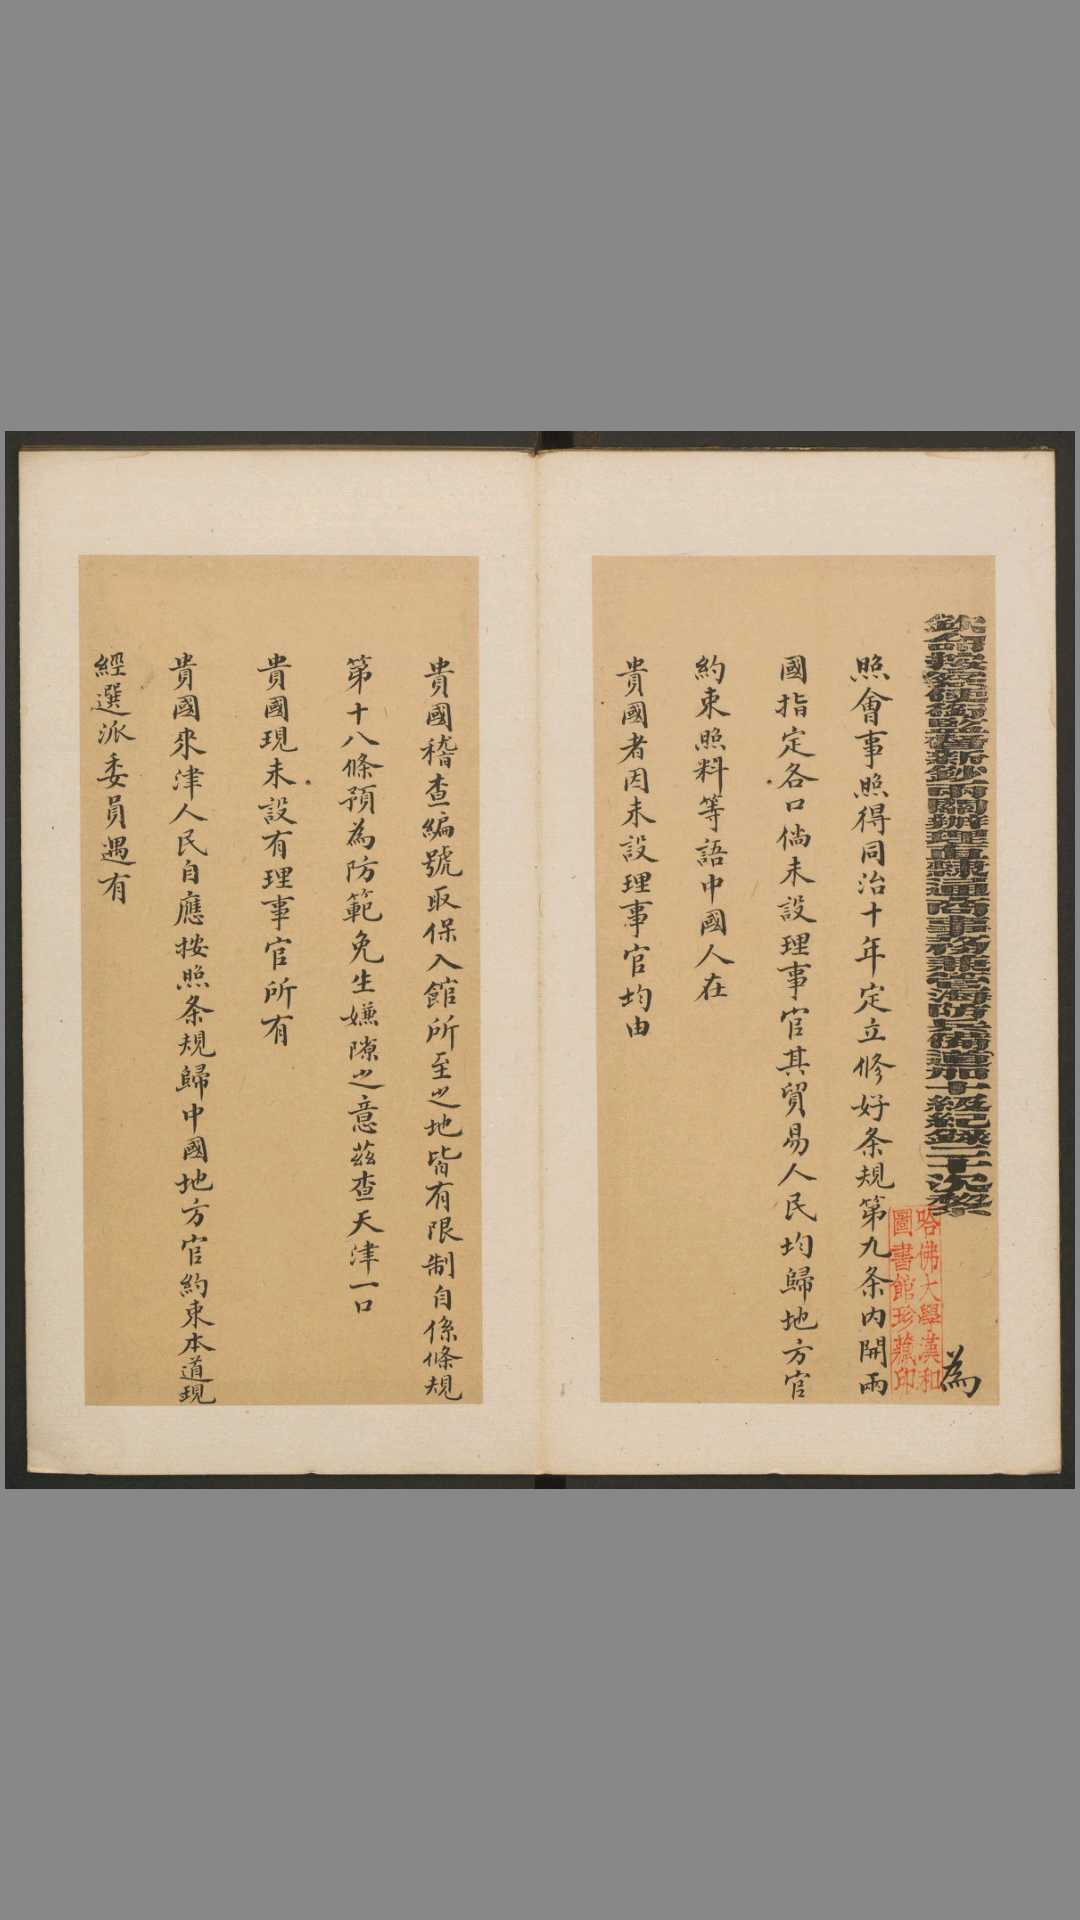 欽命按察使銜監督新鈔兩關辦理直隸通商事務兼管海防兵備道加十級紀錄二十次黎
為
哈佛大學漢和
圖書館珍藏印
照會事照得同治十年定立修好条規第九条内開兩
國指定各口倘未設理事官其貿易人民均歸地方官
約束照料等語中國人在
貴國者因未設理事官均由
貴國稽查編號取保入館所至之地皆有限制自係條規
第十八條預為防範免生嫌隙之意茲查天津一口
貴國現未設有理事官所有
貴國來津人民自應按照条規歸中國地方官約束本道現
經選派委員遇有